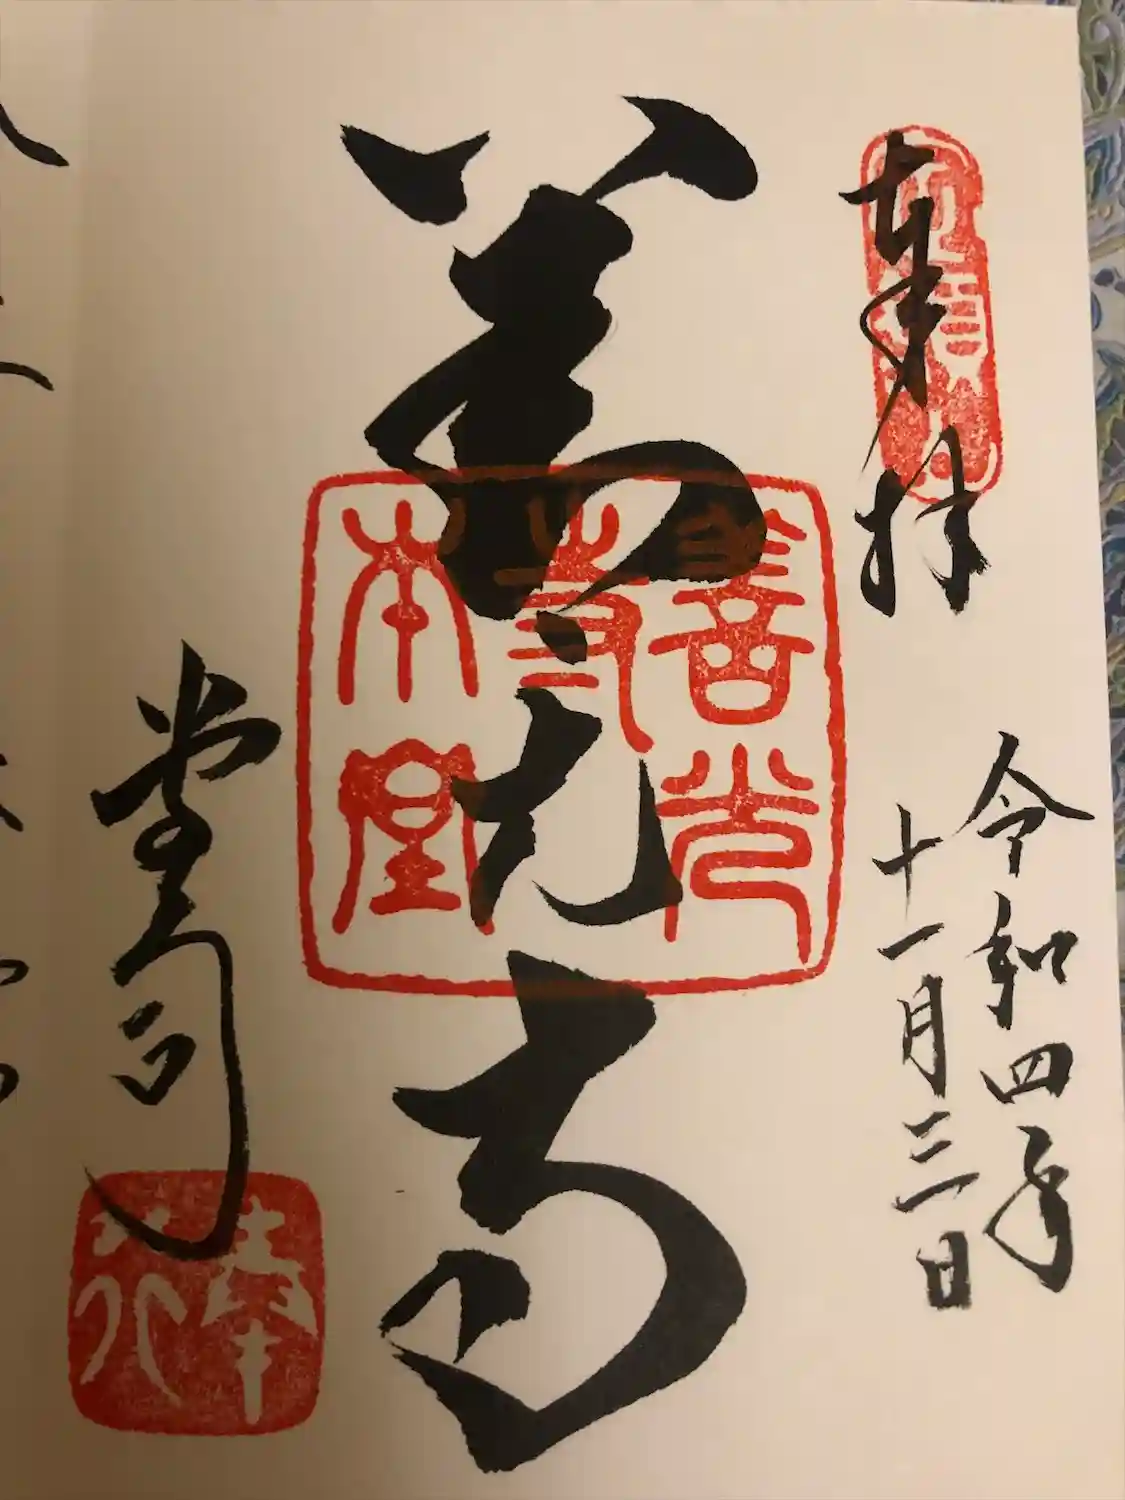 奉拝
令和四年
十一月三日
善光寺
善光
寺
本堂
堂司